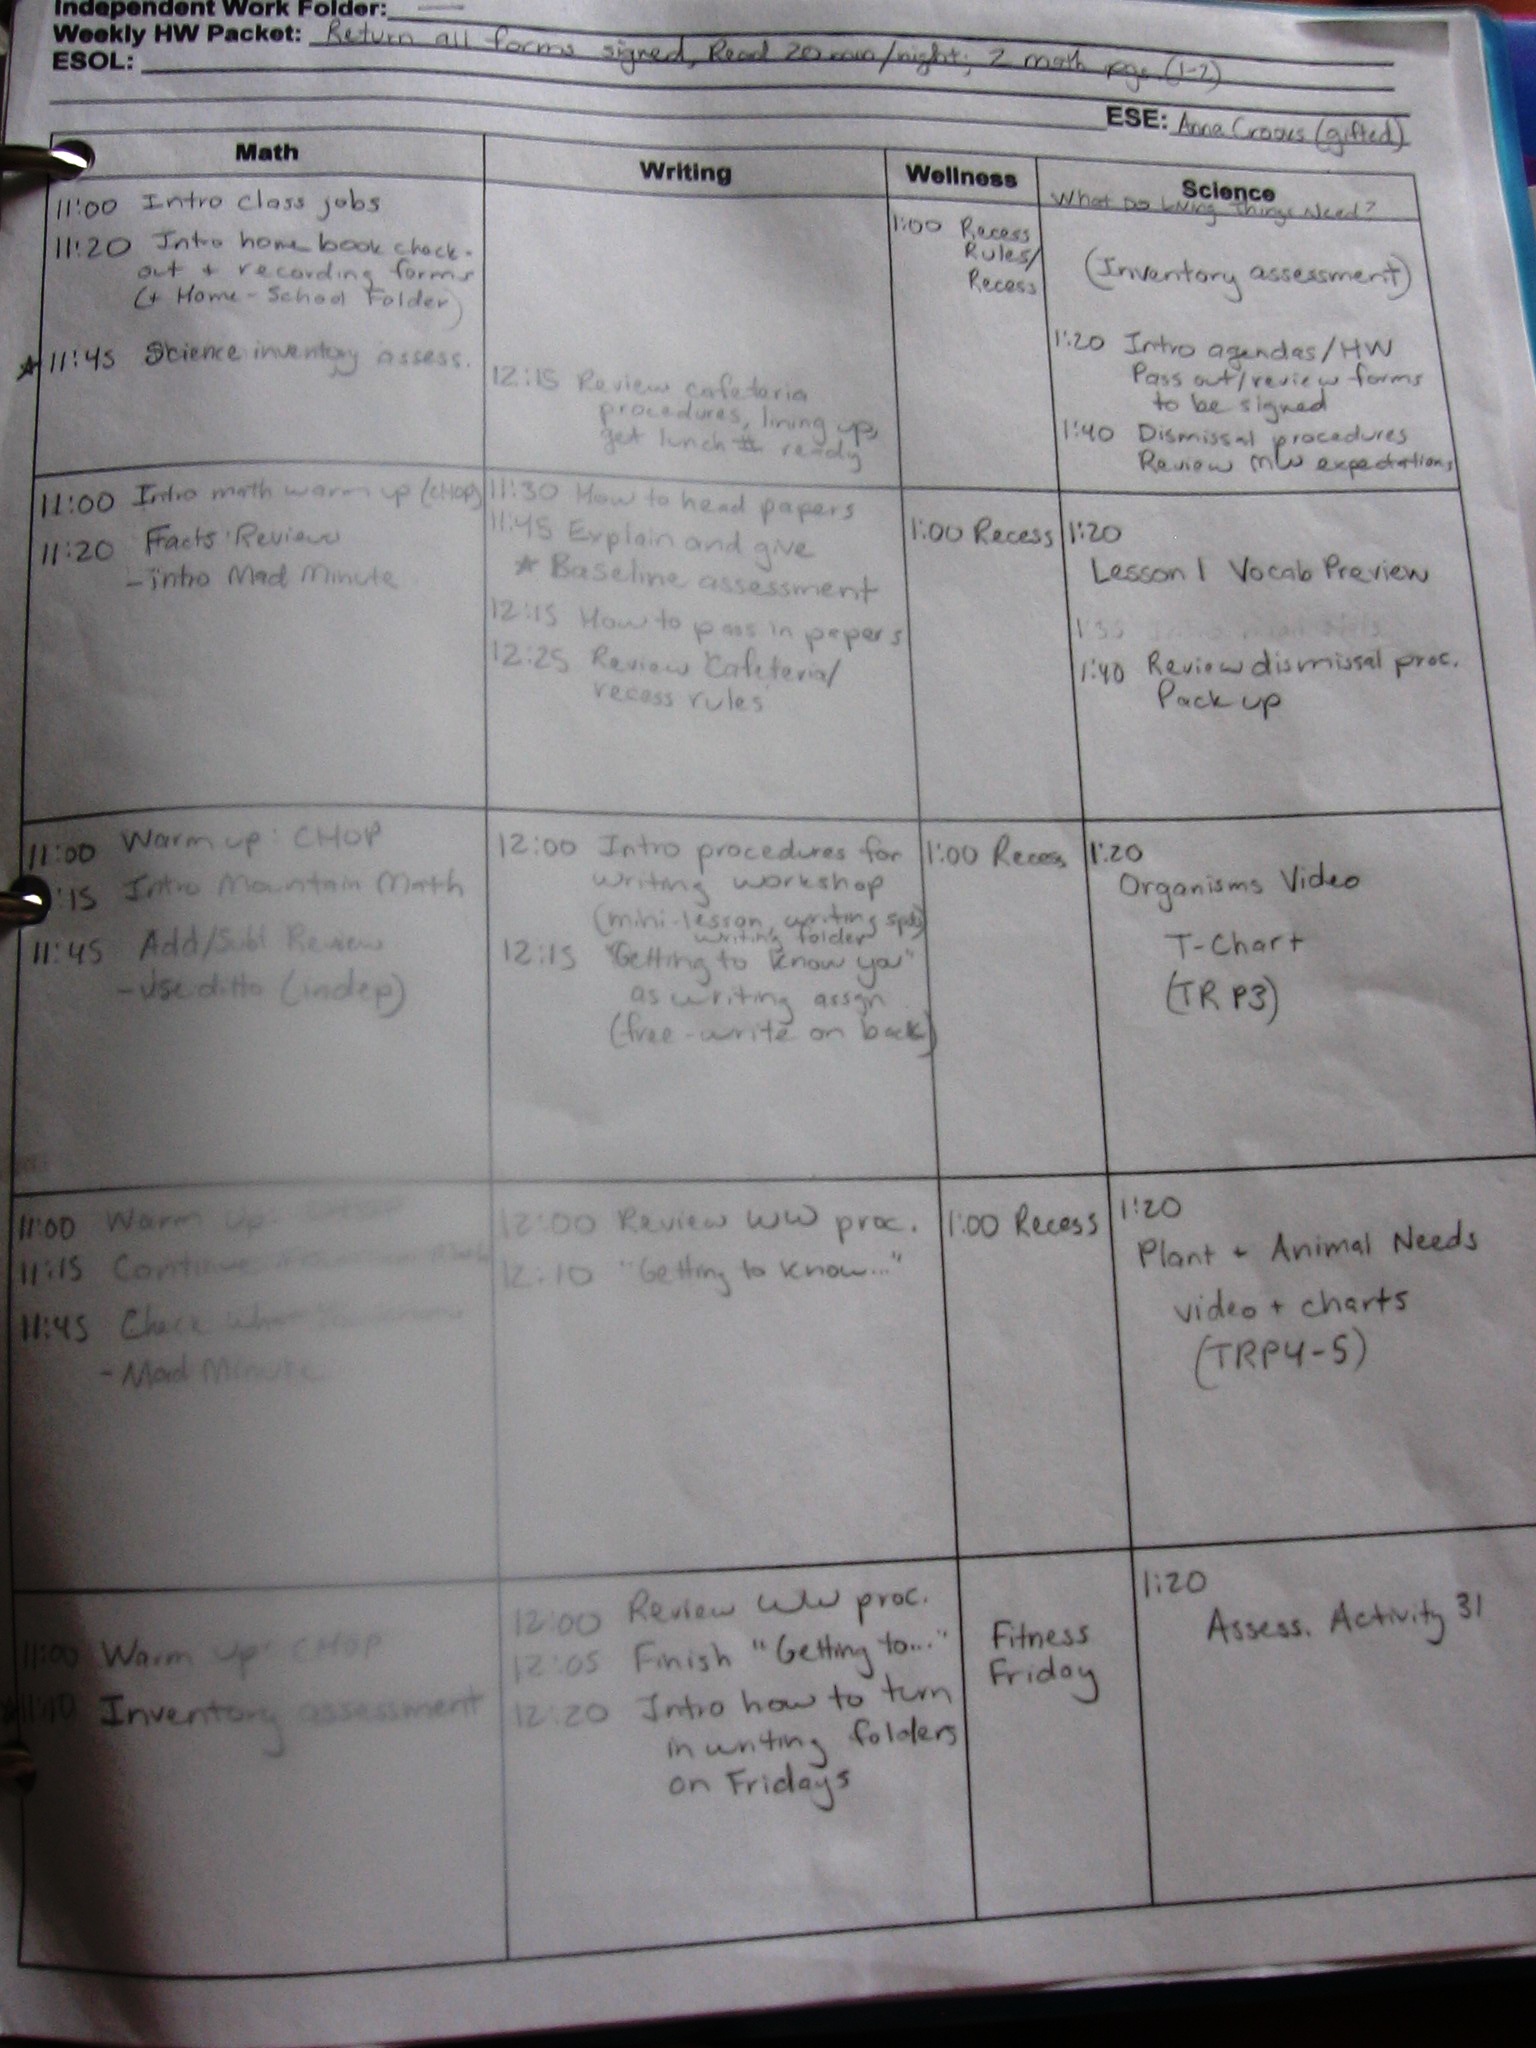 Independent Work Folder:
Weekly HW Packet: Return all forms signed, Read 20 min/night; 2 math pgs. (1-2)
ESOL:
ESE: Anna (gifted)
Math
Writing
Wellness
Science
What Do Living Things Need?
11:00 Intro class jobs
11:20 Intro home book check-
out + recording forms
(+ Home-School Folder)
11:45 Science inventory assess.
12:15 Review cafeteria
procedures, lining up,
get lunch # ready
1:00 Recess
Rules/
Recess
(Inventory assessment)
1:20 Intro agendas/HW
Pass out/review forms
to be signed
1:40 Dismissal procedures
Review MW expectations
11:00 Intro math warm up (CHOP)
11:20 Facts Review
-intro Mad Minute
11:30 How to head papers
11:45 Explain and give
Baseline assessment
12:15 How to pass in papers
12:25 Review Cafeteria/
recess rules
1:00 Recess
1:20
Lesson 1 Vocab Preview
1:40 Review dismissal proc.
Pack up
11:00 Warm up: CHOP
:15 Intro Mountain Math
11:45 Add/Subt Review
-use ditto (indep)
12:00 Intro procedures for
writing workshop
(mini-lesson, writing spots
writing folder
12:15 "Getting to know you"
as writing assgn
(free-write on back)
1:00 Recess
1:20
Organisms Video
T-Chart
(TR P3)
11:00 Warm up:
11:15 Continue
11:45 Check
-Mad Minute
12:00 Review WW proc.
12:10 "Getting to know..."
1:00 Recess
1:20
Plant + Animal Needs
video + charts
(TRP4-5)
11:00 Warm up: CHOP
11:10 Inventory assessment
12:00 Review WW proc.
12:05 Finish "Getting to..."
12:20 Intro how to turn
in writing folders
on Fridays
Fitness
Friday
1:20
Assess. Activity 31